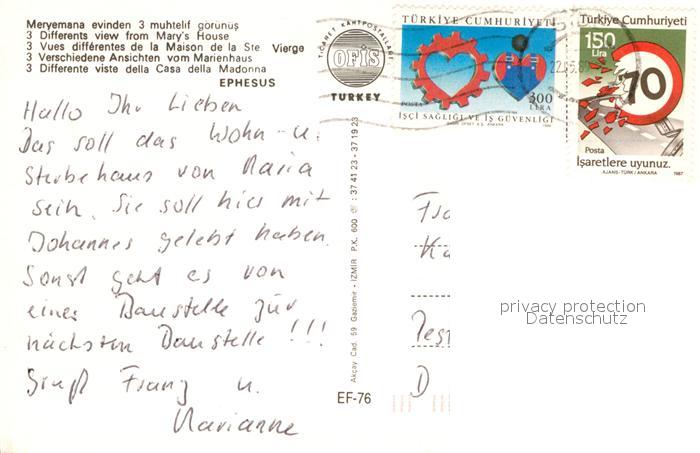 Meryemana evinden 3 muhtelif görünüş
3 Differents view from Mary's House
3 Vues différentes de la Maison de la Ste. Vierge
3 Verschiedene Ansichten vom Marienhaus
3 Differente viste della Casa della Madonna
EPHESUS
TİCARET KARTPOSTALLARI
OFİS
TURKEY
TÜRKİYE CUMHURİYETİ
POSTA
300
LIRA
İŞÇİ SAĞLIĞI VE İŞ GÜVENLİĞİ
Türkiye Cumhuriyeti
150
Lira
70
Posta
İşaretlere uyunuz.
AJANS-TÜRK/ANKARA 1987
Hallo Ihr Lieben
Das soll das Wohn- u.
Sterbehaus von Maria
sein. Sie soll hier mit
Johannes gelebt haben.
Sonst geht es von
einer Baustelle zur
nächsten Baustelle !!!
Gruß Franz u.
Marianne
Akçay Cad. 59 Gaziemir - İZMİR P.K. 600 : 37 41 23 - 37 19 23
EF-76
D
privacy protection
Datenschutz